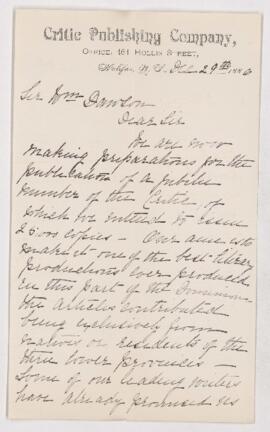 Critic Publishing Company,
OFFICE, 161 HOLLIS STREET,
Halifax, N. S. Dec 29th 1886
Sir Wm Dawson
Dear Sir
We are now
making preparations for the
publication of a jubilee
number of the Critic of
which we intend to issue
25.000 copies – Our aim is to
make it one of the best literary
productions ever produced
in this part of the Dominion
the articles contributed
being exclusively from
natives or residents of the
three lower provinces –
Some of our leading writers
have already promised us